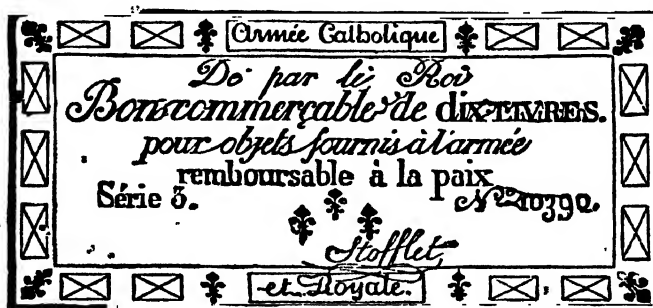 Armée Catholique
De par le Roi
Bon commerçable de DIX LIVRES.
pour objets fournis à l'armée
remboursable à la paix
Série 3. N° 10390.
Stofflet
et Royale.